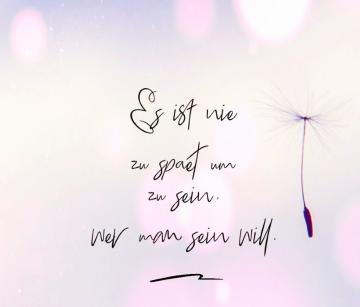 Es ist nie
zu spaet um
zu sein.
wer man sein will.